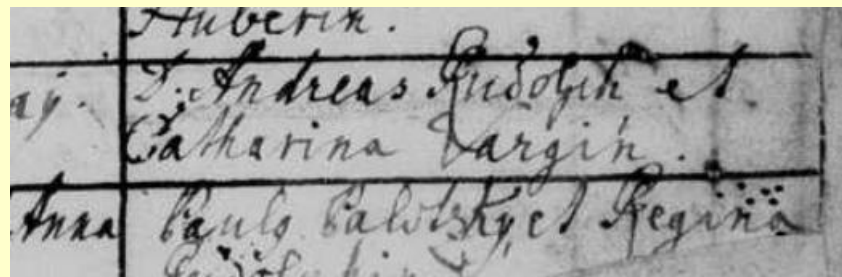 Huberin.
aÿ. D. Andreas Rudolph et
Catharina Vargin.
Anna Pauls Palotskÿ, et Regina
Rudolphin